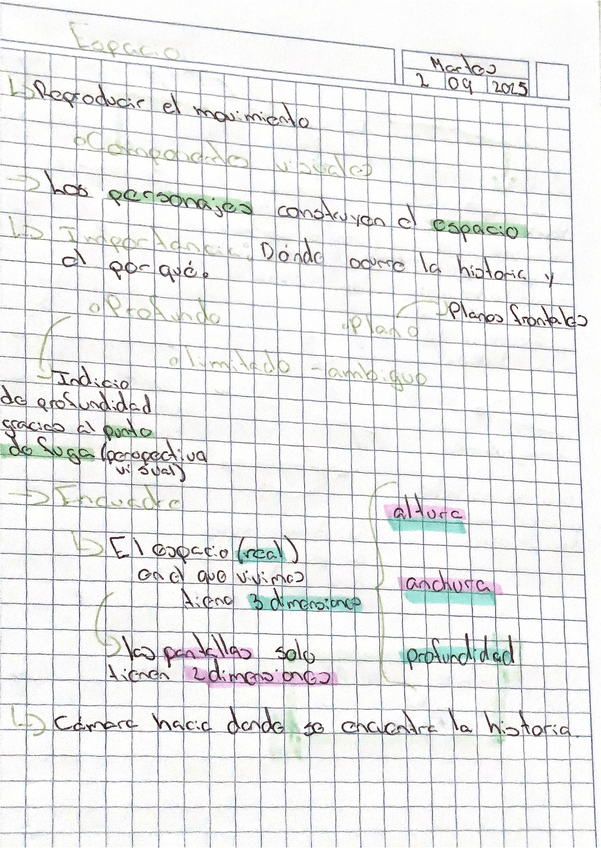 Espacio
Martes
2 09 2025
Reproducir el movimiento
Componentes visuales
→ Los personajes construyen el espacio
Importancia: Dónde ocurre la historia y
el porqué.
Profundo
Plano
Planos frontales
limitado - ambiguo
Indicio
de profundidad
gracias al punto
de fuga (perspectiva
visual)
→ Encuadre
altura
El espacio (real)
en el que vivimos
anchura
tiene 3 dimensiones
las pantallas solo
profundidad
tienen 2 dimensiones
Cámara hacia donde se encuentra la historia.